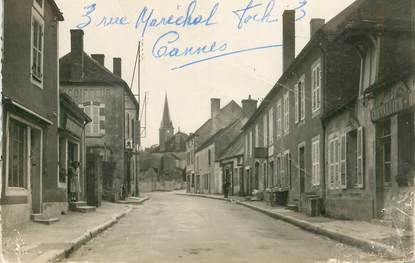 3 rue Maréchal Foch 3
Cannes